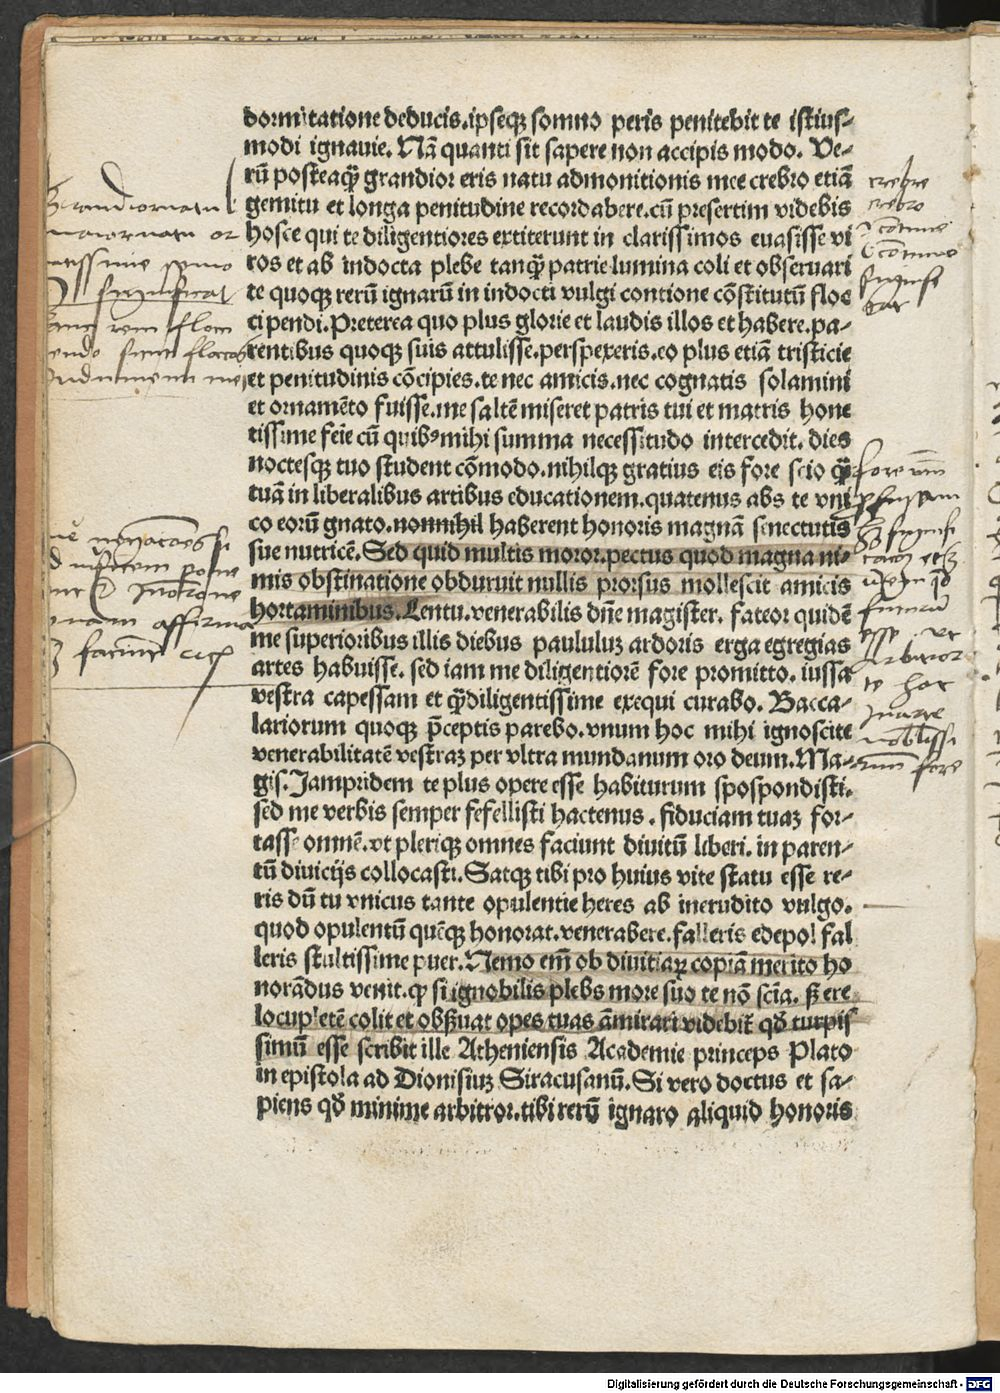 dormitatione deducis.ipseqꝫ somno peris penitebit te istius⸗
modi ignauie. Nā quanti sit sapere non accipis modo. Ve⸗
rū posteaqꝫ̄ grandior eris natu admonitionis mee crebro etiā
gemitu et longa penitudine recordabere.cū presertim videbis
hosce qui te diligentiores extiterunt in clarissimos euasisse vi
ros et ab indocta plebe tanqꝫ̄ patrie lumina coli et obseruari
te quoqꝫ rerū ignarū in indocti vulgi contione cōstitutū floc
ci pendi.Preterea quo plus glorie et laudis illos et habere.pa⸗
rentibus quoqꝫ suis attulisse.perspexeris.eo plus etiā tristicie
et penitudinis cōcipies.te nec amicis.nec cognatis solamini
et ornamēto fuisse.me saltē miseret patris tui et matris hone
stissime feīe cū quibꝰ mihi summa necessitudo intercedit. dies
noctesqꝫ tuo student cōmodo.nihilqꝫ gratius eis fore scio qꝫ̄
tuā in liberalibus artibus educationem.quatenus abs te vni
co eorū gnato.nonnihil haberent honoris magnā senectutis
sue nutricē. Sed quid multis moror.pectus quod magna ni⸗
mis obstinatione obduruit nullis prorsus mollescit amicis
hortaminibus. Lentu.venerabilis dn̄e magister. fateor quidē
me superioribus illis diebus paululuꝫ ardoris erga egregias
artes habuisse. sed iam me diligentiorē fore promitto. iussa
vestra capessam et qꝫ̄diligentissime exequi curabo. Bacca⸗
lariorum quoqꝫ p̄ceptis parebo.vnum hoc mihi ignoscite
venerabilitatē vestraꝫ per vltra mundanum oro deum. Ma⸗
gis. Jampridem te plus opere esse habiturum spospondisti.
sed me verbis semper fefellisti hactenus . fiduciam tuaꝫ for⸗
tasse omnē.vt pleriqꝫ omnes faciunt diuitū liberi. in paren⸗
tū diuicijs collocasti. Satqꝫ tibi pro huius vite statu esse re⸗
ris dū tu vnicus tante opulentie heres ab inerudito vulgo.
quod opulentū quēqꝫ honorat.venerabere.falleris edepol fal
leris stultissime puer. Nemo em̄ ob diuitiaꝝ copiā merito ho
norādus venit.qꝫ si ignobilis plebs more suo te nō sciā. ß ere
locupletē colit et obßuat opes tuas āmirari videbit̄ qđ turpis
simū esse scribit ille Atheniensis Academie princeps Plato
in epistola ad Dionisiuꝫ Siracusanū. Si vero doctus et sa⸗
piens qđ minime arbitror.tibi rerū ignaro aliquid honoris
crebre
crebro
significat
Digitalisierung gefördert durch die Deutsche Forschungsgemeinschaft - DFG